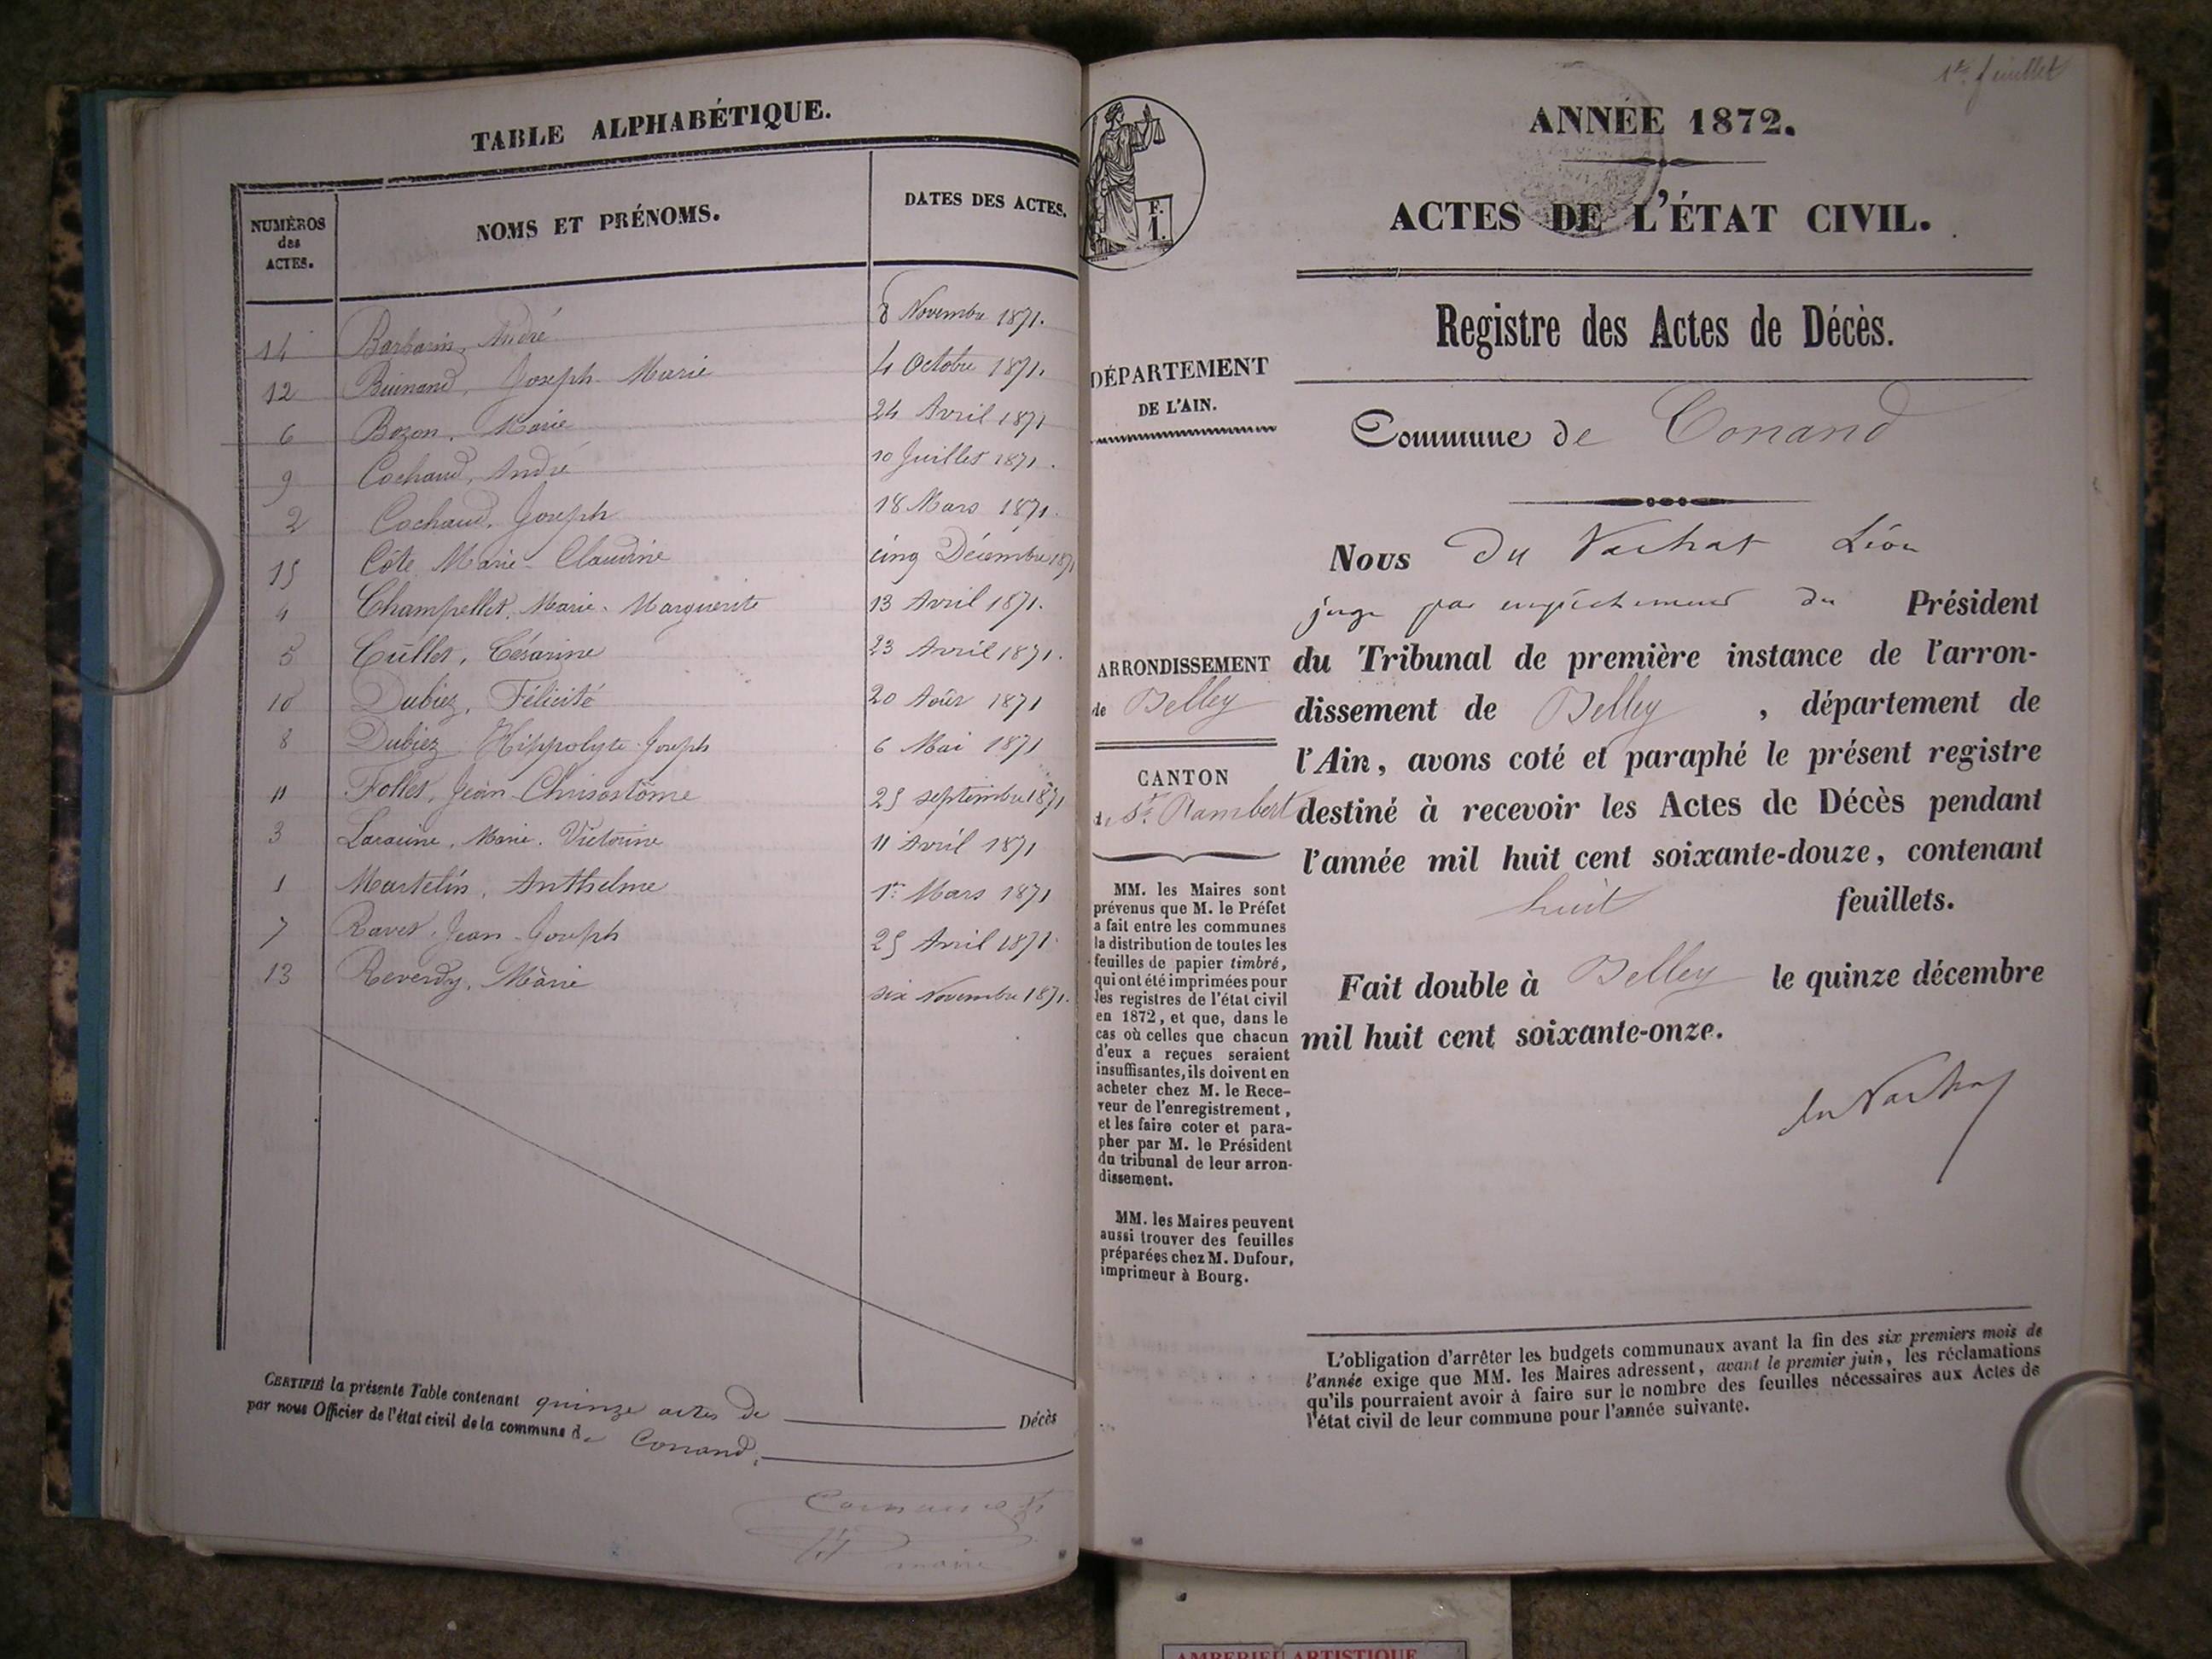 TABLE ALPHABÉTIQUE.
NUMÉROS des ACTES. NOMS ET PRÉNOMS. DATES DES ACTES.
14 Barbarin, André 8 Novembre 1871.
12 Joseph Marie 4 Octobre 1871.
6 Bozon, Marie 24 Avril 1871
9 Cochaud, André 10 Juillet 1871.
2 Cochaud, Joseph 18 Mars 1871.
15 Côte Marie-Claudine cinq Décembre 1871
4 Champellet, Marie-Marguerite 13 Avril 1871.
5 Cullet, Césarine 23 Avril 1871.
10 Dubiez, Félicité 20 Août 1871
8 Dubiez Hippolyte-Joseph 6 Mai 1871
11 Follet, Jean-Chrisostôme 25 septembre 1871
3 Marie-Victorine 11 Avril 1871
1 Martelin, Anthelme 1er Mars 1871
7 Ravet, Jean-Joseph 25 Avril 1871.
13 Reverdy, Marie six Novembre 1871.
CERTIFIÉ la présente Table contenant quinze actes de Décès
par nous Officier de l'état civil de la commune de Conand.
maire
1er feuillet
ANNÉE 1872.
ACTES DE L'ÉTAT CIVIL.
Registre des Actes de Décès.
F.
I.
DÉPARTEMENT
DE L'AIN.
ARRONDISSEMENT
de Belley
CANTON
de St. Rambert
MM. les Maires sont
prévenus que M. le Préfet
a fait entre les communes
la distribution de toutes les
feuilles de papier timbré,
qui ont été imprimées pour
les registres de l'état civil
en 1872, et que, dans le
cas où celles que chacun
d'eux a reçues seraient
insuffisantes, ils doivent en
acheter chez M. le Rece-
veur de l'enregistrement,
et les faire coter et para-
pher par M. le Président
du tribunal de leur arron-
dissement.
MM. les Maires peuvent
aussi trouver des feuilles
préparées chez M. Dufour,
imprimeur à Bourg.
Commune de Conand
Nous du Vachat Léon
juge par empêchement du Président
du Tribunal de première instance de l'arron-
dissement de Belley, département de
l'Ain, avons coté et paraphé le présent registre
destiné à recevoir les Actes de Décès pendant
l'année mil huit cent soixante-douze, contenant
huit feuillets.
Fait double à Belley le quinze décembre
mil huit cent soixante-onze.
du Vachat
L'obligation d'arrêter les budgets communaux avant la fin des six premiers mois de
l'année exige que MM. les Maires adressent, avant le premier juin, les réclamations
qu'ils pourraient avoir à faire sur le nombre des feuilles nécessaires aux Actes de
l'état civil de leur commune pour l'année suivante.
AMBERIEU ARTISTIQUE